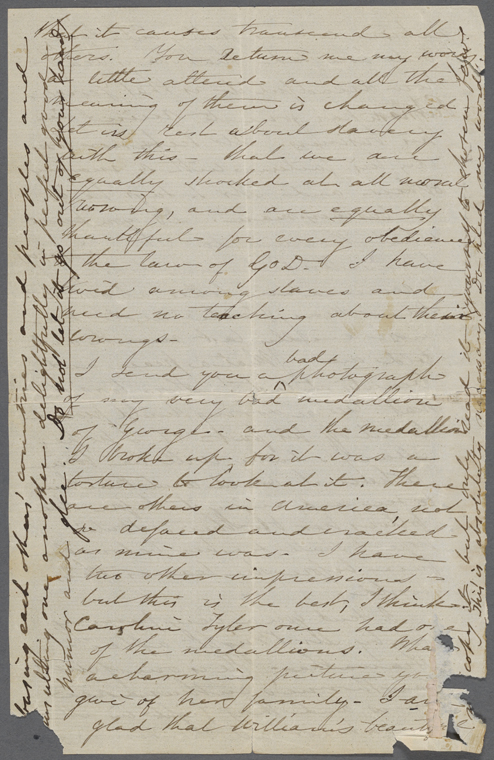 it causes transcend all
You return me my words
little altered and all the
meaning of them is changed
rest about slavery
with this - that we are
equally shocked at all moral
wrong, and are equally
thankful for every obedience
the law of GOD. I have
lived among slaves and
need no teaching about their
wrongs -
I send you a bad photograph
of my very bad medallion
of George - and the medallion
I broke up for it was a
torture to look at it. There
are others in America, not
so defaced and cracked
as mine was - I have
two other impressions -
but this is the best, I think
Caroline Tyler once had one
of the medallions. What
a charming picture you
give of her family - I am
glad that William's beauty
each others' countries and peoples and
insulting one another delightfully in perfect good
humor and glee. Do not let it go out of your hand
copy it, but only read it
This is absolutely necessary. Do heed my words.